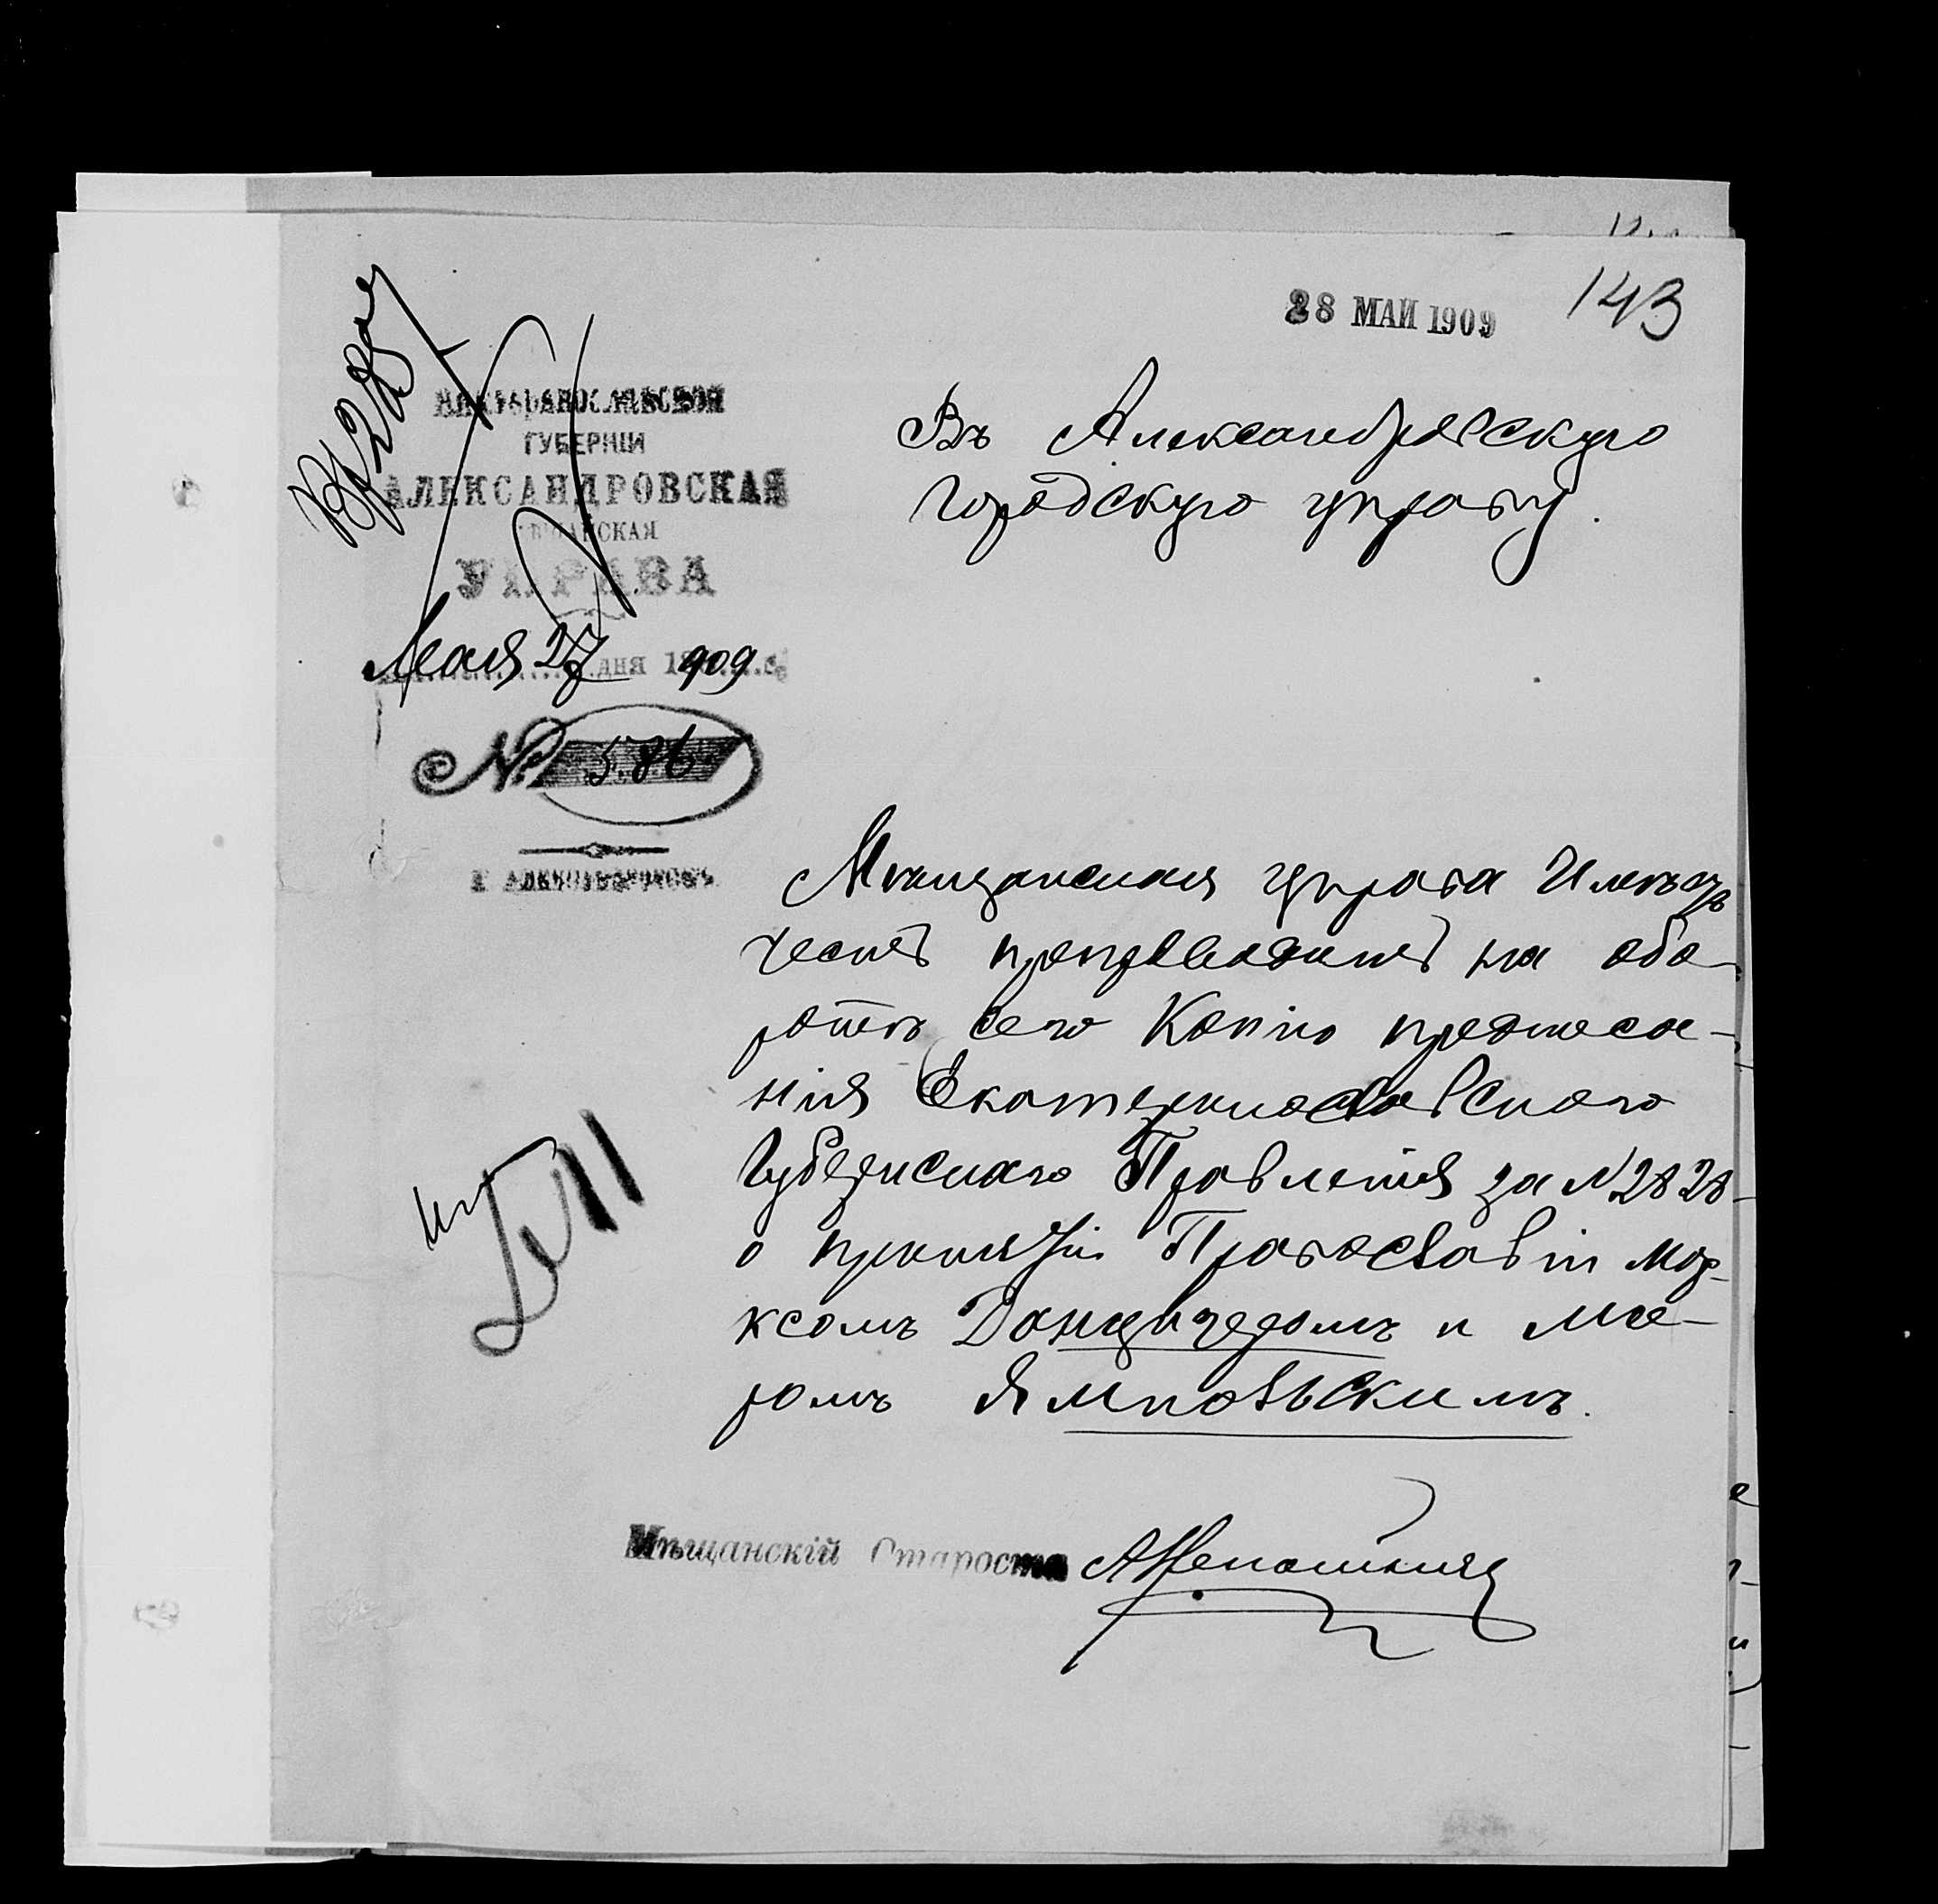 28 МАЙ 1909
143
ЕКАТЕРИНОСЛАВСКОЙ
ГУБЕРНІИ
АЛЕКСАНДРОВСКАЯ
МѢЩАНСКАЯ
УПРАВА
Мая 27 дня 1909 г.
№ 586
Г. АЛЕКСАНДРОВСКЪ
Въ Александровскую
Городскую управу.
Мѣщанская управа Имѣетъ
честь препроводить на обо-
ротѣ сего Копію предписа-
нія Екатеринославского
Губернскаго Правленія за N 2828
о принятіи Православія Мар-
ксомъ Данцигеромъ и Ме-
ромъ Ямпольскимъ.
Мѣщанскій Староста